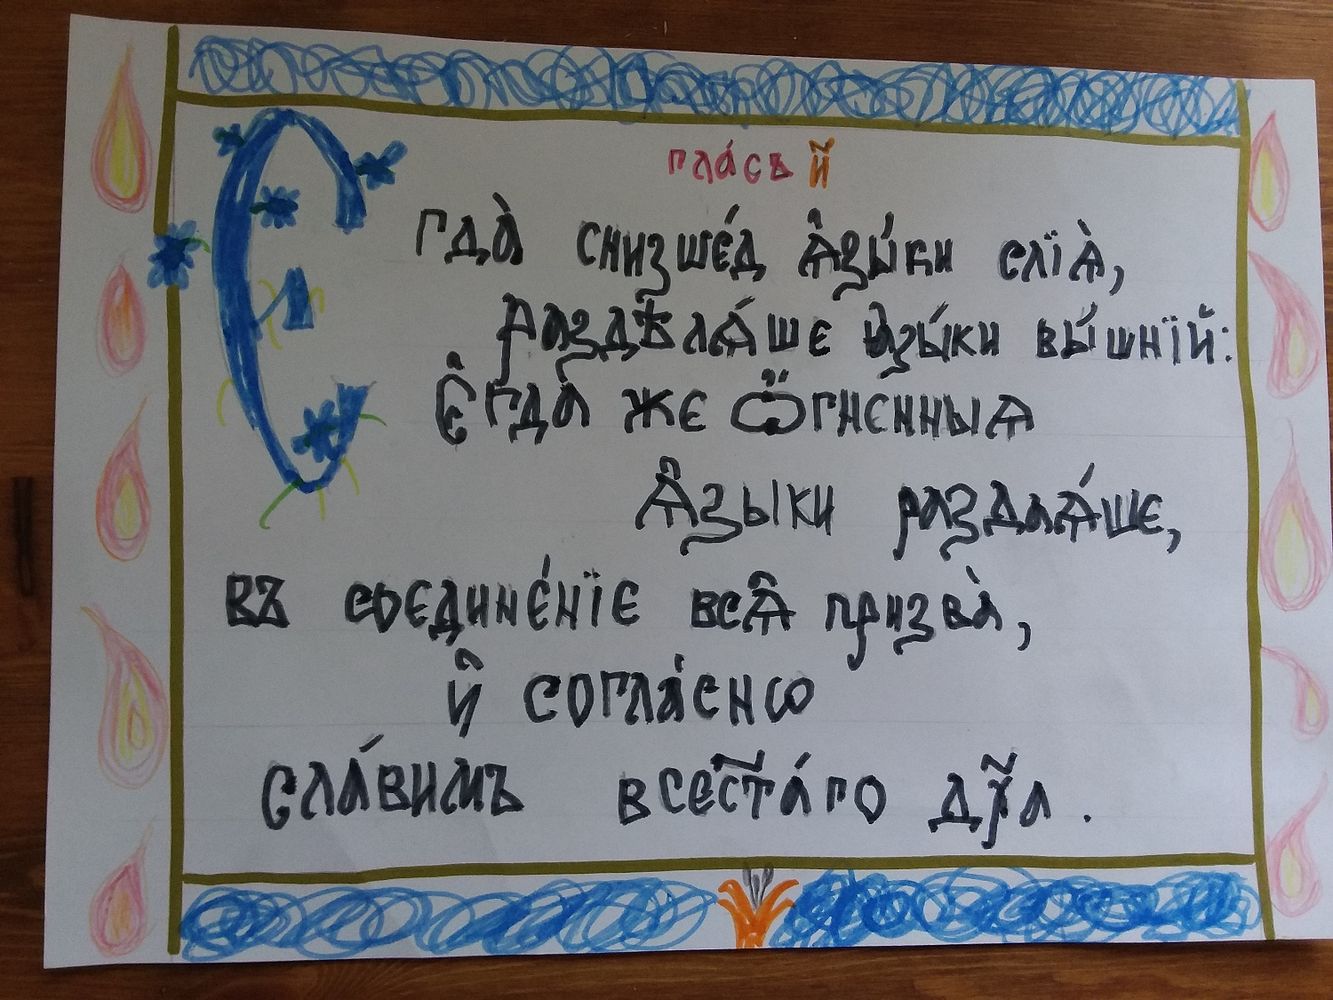 гла́съ и҃
Є гда̀ снизше́д ѧ҆зы́ки слїѧ̀,
раздѣлѧ́ше ѧзы́ки вы́шнїй:
Є҆гда̀ же ѻ҆́гненныѧ
Ѧ҆зыки раздаѧ́ше,
въ соедине́нїе всѧ҆ призва̀,
и҆ согла́снѡ
сла́вимъ всест҃а́го дх҃а.